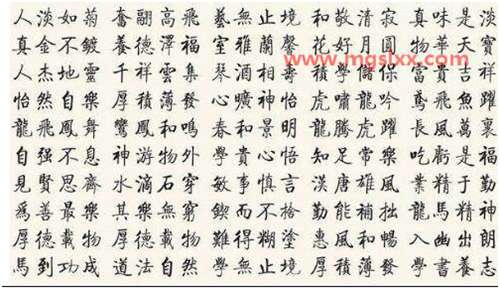 人淡如菊 奮翮高飛 藝無止境 和敬清寂 真味是淡
真金不鍍 養德澤福 室雅蘭馨 花好月圓 物華天寶
www.mgslxx.com
人杰地靈 千祥雲集 琴酒相 積學 富貴吉祥
怡然自樂 厚積薄發 心曠神怡 虎嘯龍吟 鳶飛魚躍
龍飛鳳舞 鸞鳳和鳴 春和景明 龍騰虎躍 長風萬裏
自强不息 神游物外 學貴心悟 知足常樂 吃虧是福
見賢思齊 水滴石穿 敏事慎言 漢唐雄風 業精于勤
爲善最樂 其樂無窮 鍥而不捨 勤能補拙 龍馬精神
厚德載物 厚德載物 難得糊塗 惠風和暢 入幽出朗
馬到功成 道法自然 學無止境 厚積薄發 學書養志